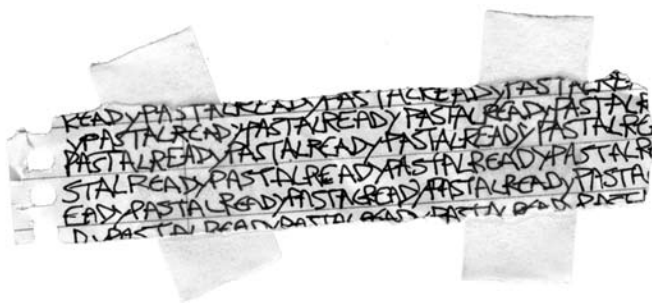 READyPASTALREADyPASTALREADyPASTALRE
yPASTALREADyPASTALREADyPASTALREADyPASTALR
PASTALREADyPASTALREADyPASTALREADyPASTALRE
STALREADyPASTALREADyPASTALREADyPASTALR
EADyPASTALREADyPASTALREADyPASTALREADyPASTA
DyPASTALREADyPASTALREADyPASTALREADyPAST